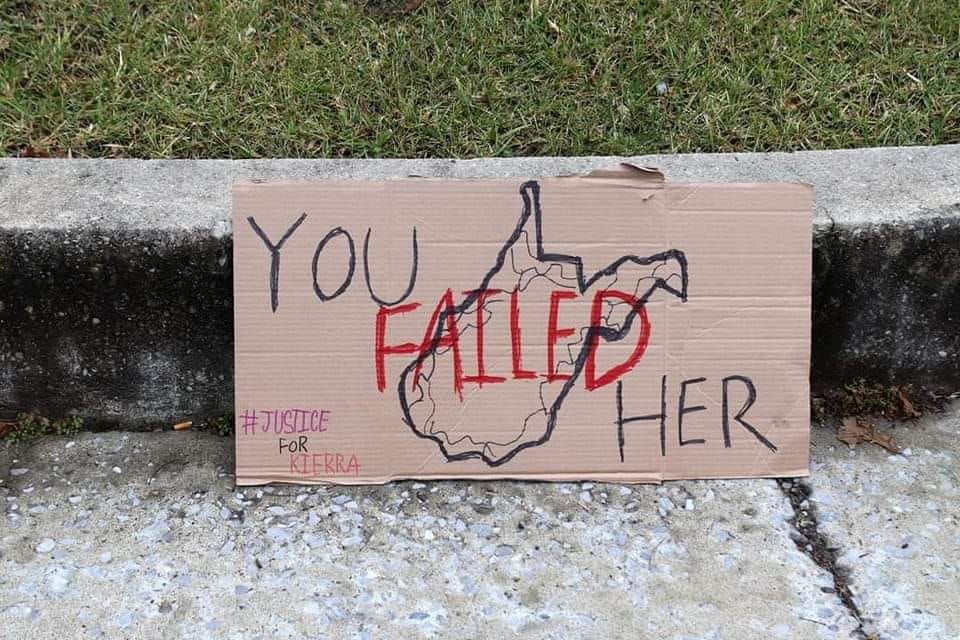 YOU
FAILED
HER
#JUSTICE
FOR
KIERRA